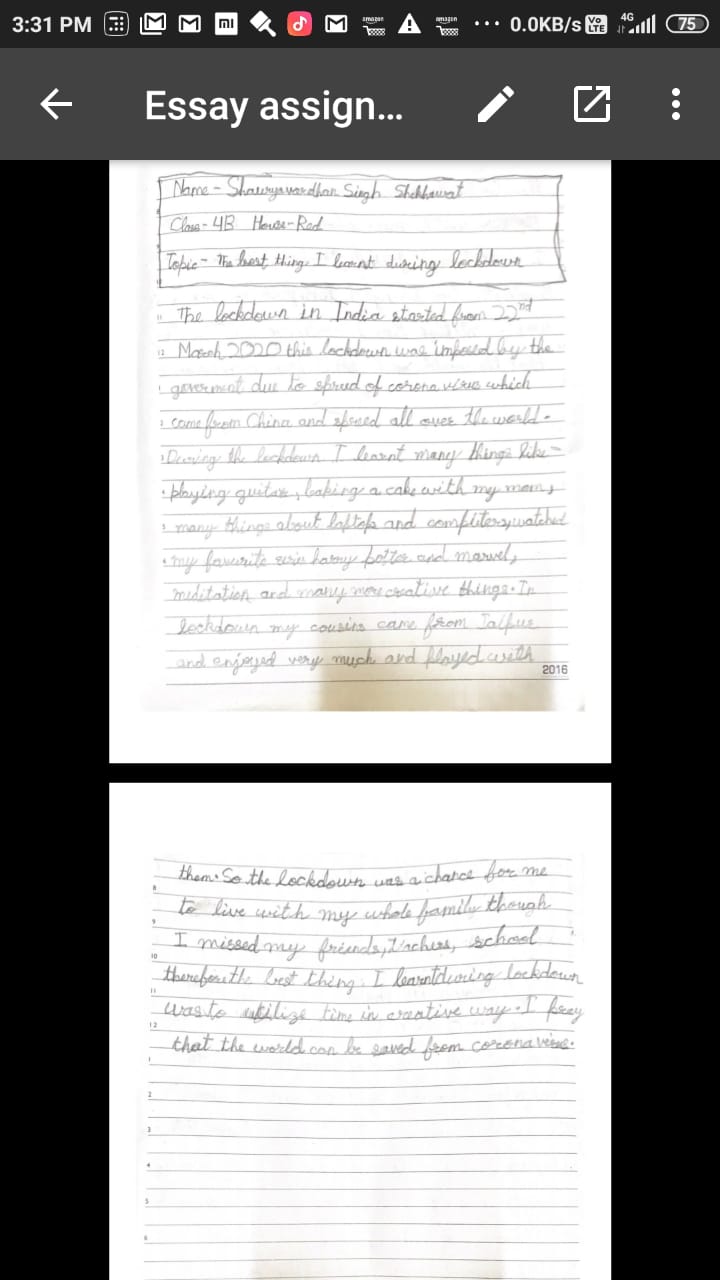 3:31 PM mi amazon amazon ... 0.0KB/s Vo LTE 4G 75
Essay assign...
Name - Shauryavardhan Singh Shekhawat
Class - 4B House - Red
Topic - The best thing I learnt during lockdown
11 The lockdown in India started from 22nd
12 March 2020 this lockdown was imposed by the
1 goverment due to spred of corona virus which
2 came from China and spread all over the world.
3 During the lockdown I learnt many things like -
4 playing guitar, baking a cake with my mom,
5 many things about laptops and computers, watched
6 my favourite harry potter and marvel,
meditation and many more creative things. In
lockdown my cousins came from Jaipur
and enjoyed very much and played with
2016
them. So the lockdown was a chance for me
8 to live with my whole family though
9 I missed my friends, teachers, school
10 therefore the best thing I learnt during lockdown
11 was to utilize time in creative way. I pray
12 that the world can be saved from corona virus.
1
2
3
4
5
6